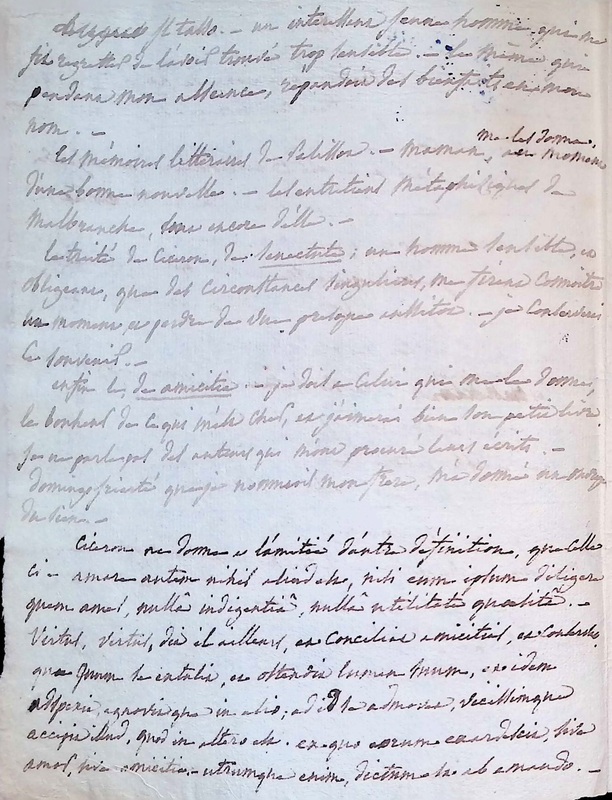 st tallo. - un interessant jeune homme, qui me
fit regretter de l'avoir trouvé trop sensible. - le même qui
pendant mon absence, répandoit des bienfaits en mon
nom. -
me les donna,
Les mémoires littéraires de Palissot. - Maman, au moment
d'une bonne nouvelle. - les entretiens métaphisiques de
Malbranche, sont encore d'elle. -
le traité de Ciceron, de senectute; un homme sensible, et
obligeant, que des circonstances singulieres, me firent connoitre
un moment, et perdre de vue presque aussitot. - je conserverai
le souvenir. -
enfin le, de amicitia - je dois a celui qui me le donna,
le bonheur de ce qui m'est cher, et j'aimerai bien son petit livre.
je ne parle pas des auteurs qui m'ont procuré leurs écrits. -
que je nommois mon frere, m'a donné un ouvrage
du sien. -
Ciceron ne donne a l'amitié d'autre définition, que celle
ci - amare autem nihil aliud est, nisi eum ipsum diligere
quem ames, nullâ indigentiâ, nullâ utilitate quaesitâ. -
Virtus, virtus, dit il ailleurs, et conciliat amicitias, et conservat,
quae quum se extulit, et ostendit lumen suum, et idem
adspexit agnovitque in alio; ad id se admovet, vicissimque
accipit illud, quod in altero est. ex quo eorum exardescit, sive
amor, sive amicitia. - utrumque enim, dictum est ab amando. -